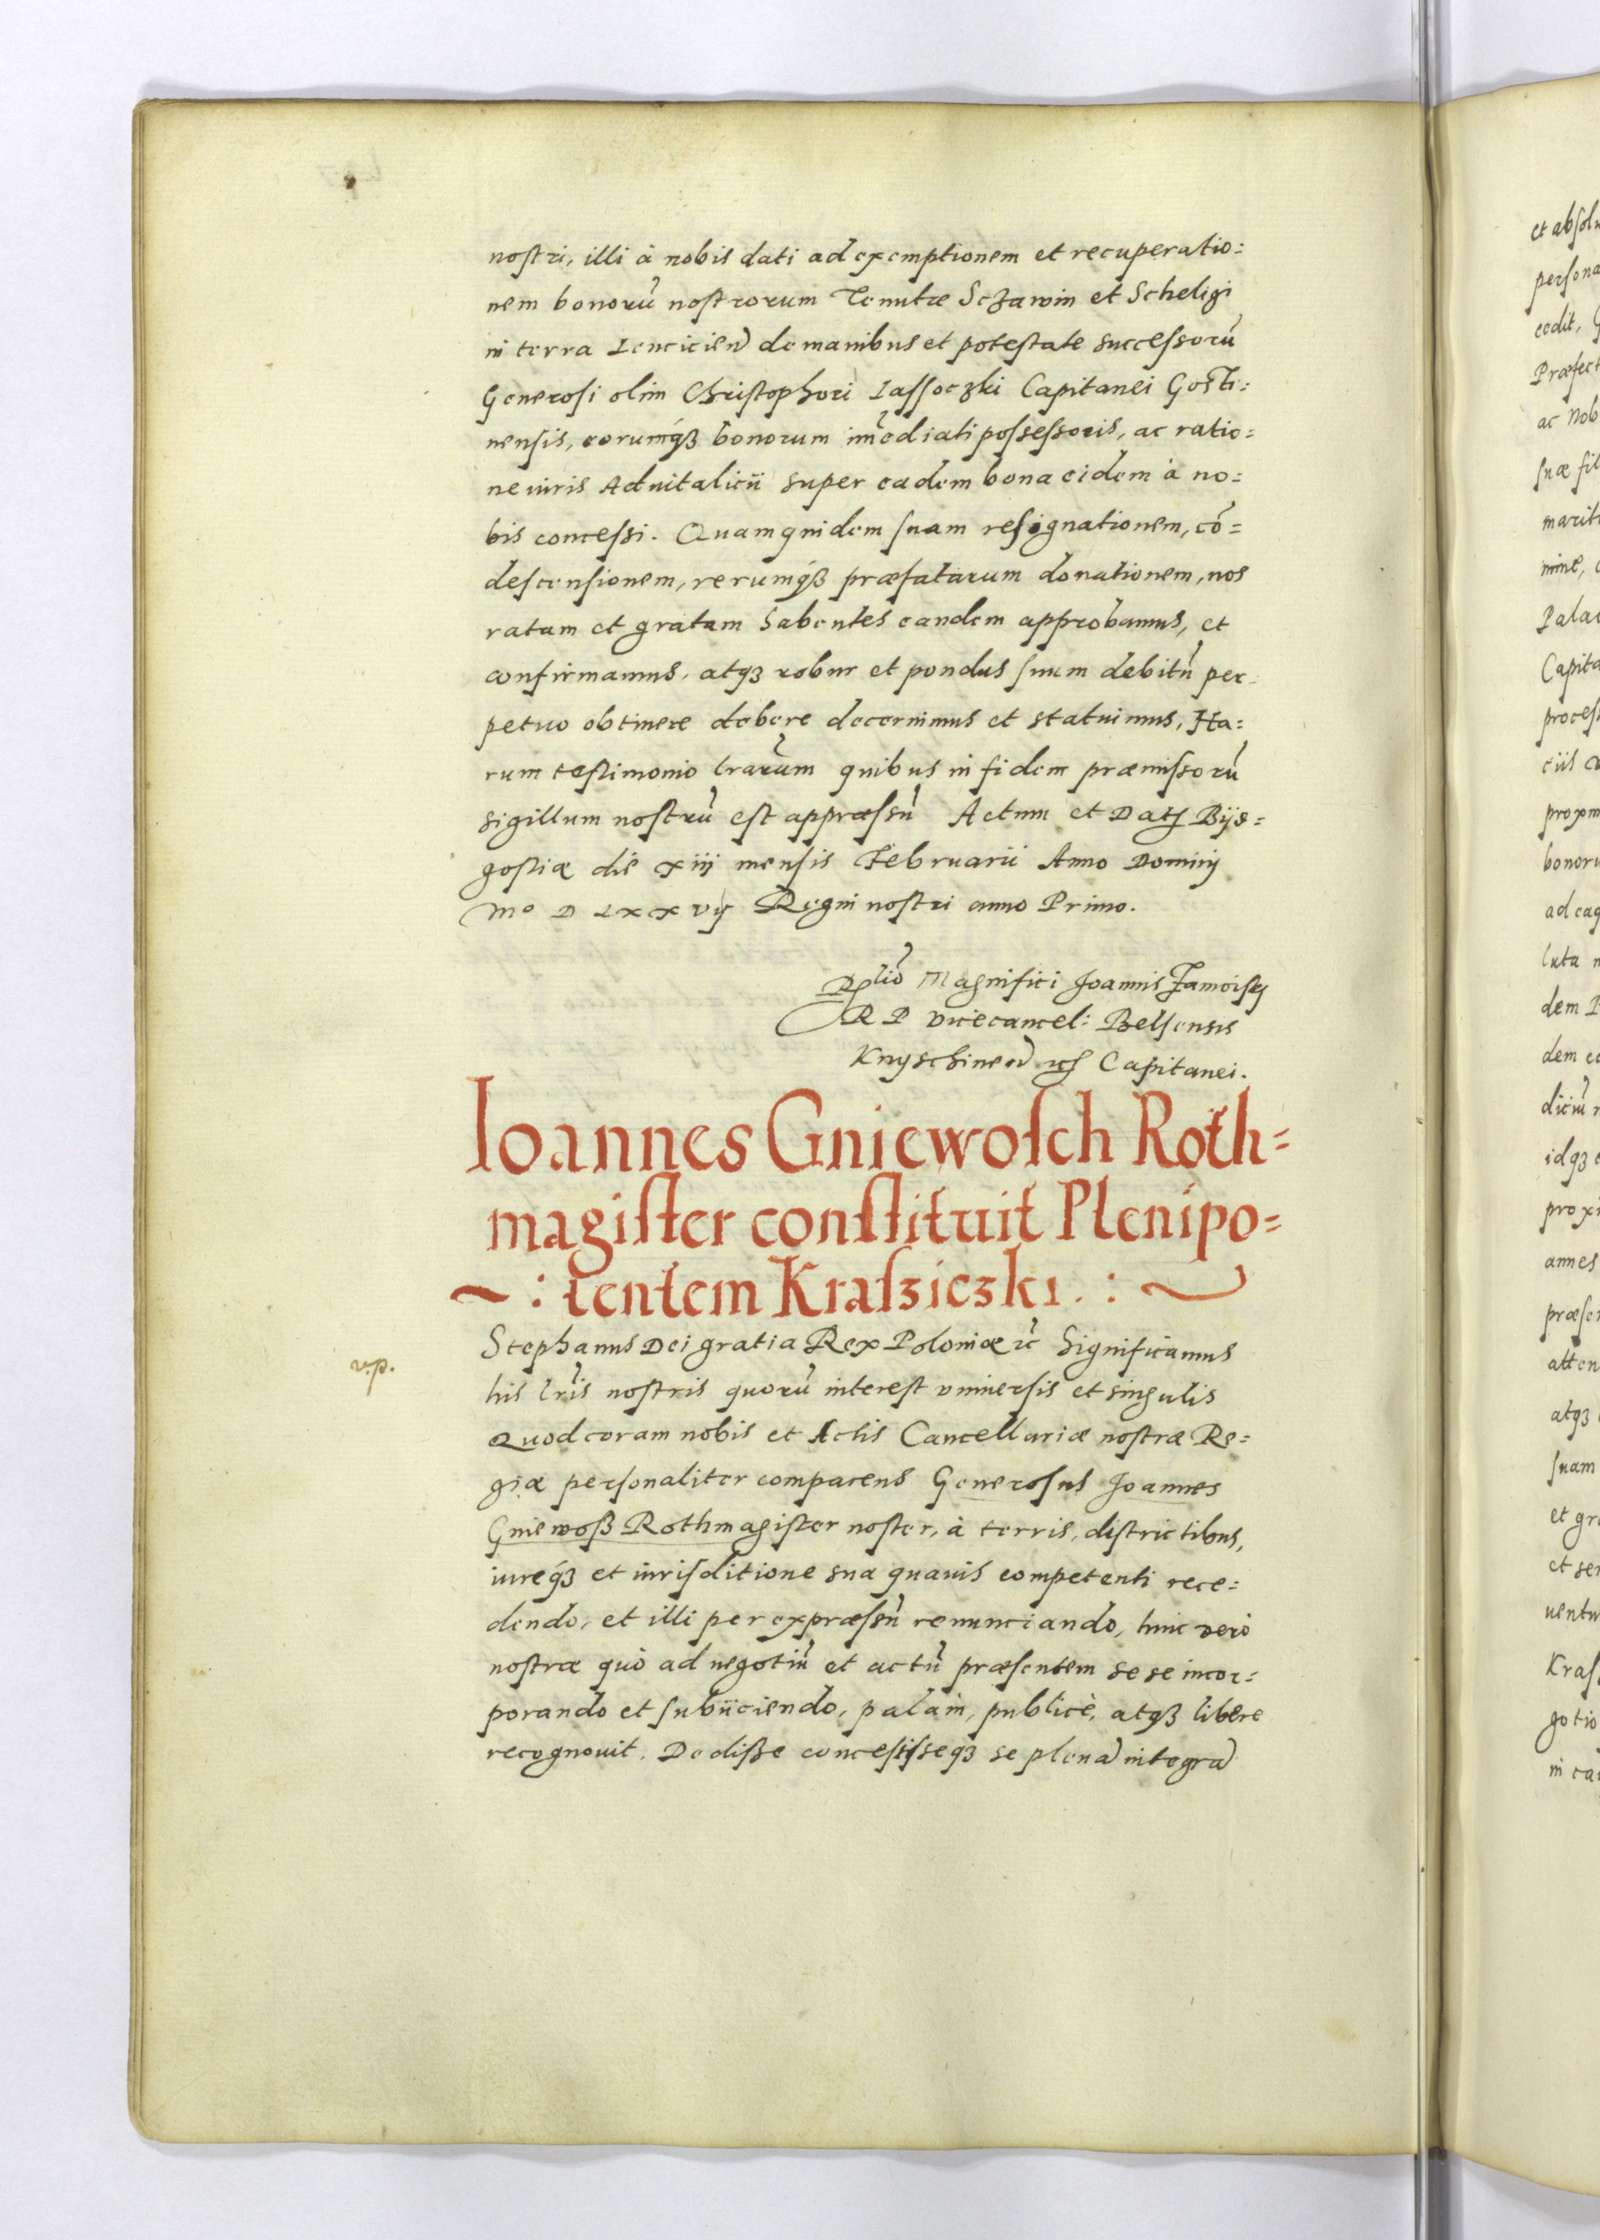 nostri, illi à nobis dati ad exemptionem et recuperatio=
nem bonorũ nostrorum Tenutæ Sczawin et Scheligi
in terra Lencicien̄ de manibus et potestate successorũ
Generosi olim Christophori Lassoczki Capitanei Gosti=
nensis, eorumq́ꝫ bonorum im̃ediati possessoris, ac ratio=
ne iuris Aduitalicii super eadem bona eidem à no=
bis concessi. Quamquidem suam resignationem, cõ=
descensionem, rerumq́ꝫ præfatarum donationem, nos
ratam et gratam habentes eandem approbamus, et
confirmamus, atqꝫ robur et pondus suum debitũ per
petuo obtinere debere decernimus et statuimus, Ha=
rum testimonio lrar̃um quibus in fidem præmissorũ
sigillum nostrũ est appræssũ Actum et Datꝭ Byd=
gostiæ die xiij mensis Februarii Anno Dominj
Mº D Lxx vij Regni nostri anno Primo.
Rlĩo Magnifici Joannis Zamoiskj
R P Vicecancel: Belsensis
Knyschinen̄ ꝛcꝭ Capitanei.
Ioannes Gniewosch Roth=
magister constituit Plenipo=
~ : tentem Krasziczki . : ~
vp.
Stephanus Dei gratia Rex Poloniæ ꝛc̃ Significamus
his lr̃is nostris quorũ interest vniuersis et singulis
Quod coram nobis et Actis Cancellariæ nostræ Re=
giæ personaliter comparens Generosus Joannes
Gniewoß Rothmagister noster, à terris, districtibus,
iureq́ꝫ et iurisditione sua quauis competenti rece=
dendo, et illi per expræssũ renunciando, hinc verò
nostræ quò ad negotiũ et actũ præsentem se se incor=
porando et subiiciendo, palàm, publicè, atqꝫ libere
recognouit. Dediße concessisseqꝫ se plenā integrā
et absolu
persona
cedit, G
Præfect
ac Nob
suæ fil
marit
mine,
Palat
Capita
process
ciis
proxim
bonoru
ad eaq
luta
dem P
dem
diciũ
idqꝫ
proxi
annes
præsen
atten
atqꝫ
suam
et gra
et ser
uentu
Kras
gotio
in